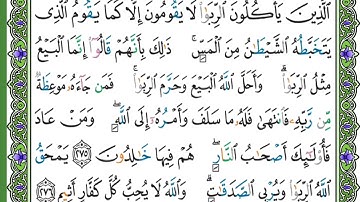 ٱلَّذِينَ يَأۡكُلُونَ ٱلرِّبَوٰاْ لَا يَقُومُونَ إِلَّا كَمَا يَقُومُ ٱلَّذِي
يَتَخَبَّطُهُ ٱلشَّيۡطَٰنُ مِنَ ٱلۡمَسِّۚ ذَٰلِكَ بِأَنَّهُمۡ قَالُوٓاْ إِنَّمَا ٱلۡبَيۡعُ
مِثۡلُ ٱلرِّبَوٰاْۗ وَأَحَلَّ ٱللَّهُ ٱلۡبَيۡعَ وَحَرَّمَ ٱلرِّبَوٰاْۚ فَمَن جَآءَهُۥ مَوۡعِظَةٞ
مِّن رَّبِّهِۦ فَٱنتَهَىٰ فَلَهُۥ مَا سَلَفَ وَأَمۡرُهُۥٓ إِلَى ٱللَّهِۖ وَمَنۡ عَادَ
فَأُوْلَٰٓئِكَ أَصۡحَٰبُ ٱلنَّارِۖ هُمۡ فِيهَا خَٰلِدُونَ ٢٧٥ يَمۡحَقُ
ٱللَّهُ ٱلرِّبَوٰاْ وَيُرۡبِي ٱلصَّدَقَٰتِۗ وَٱللَّهُ لَا يُحِبُّ كُلَّ كَفَّارٍ أَثِيمٍ ٢٧٦